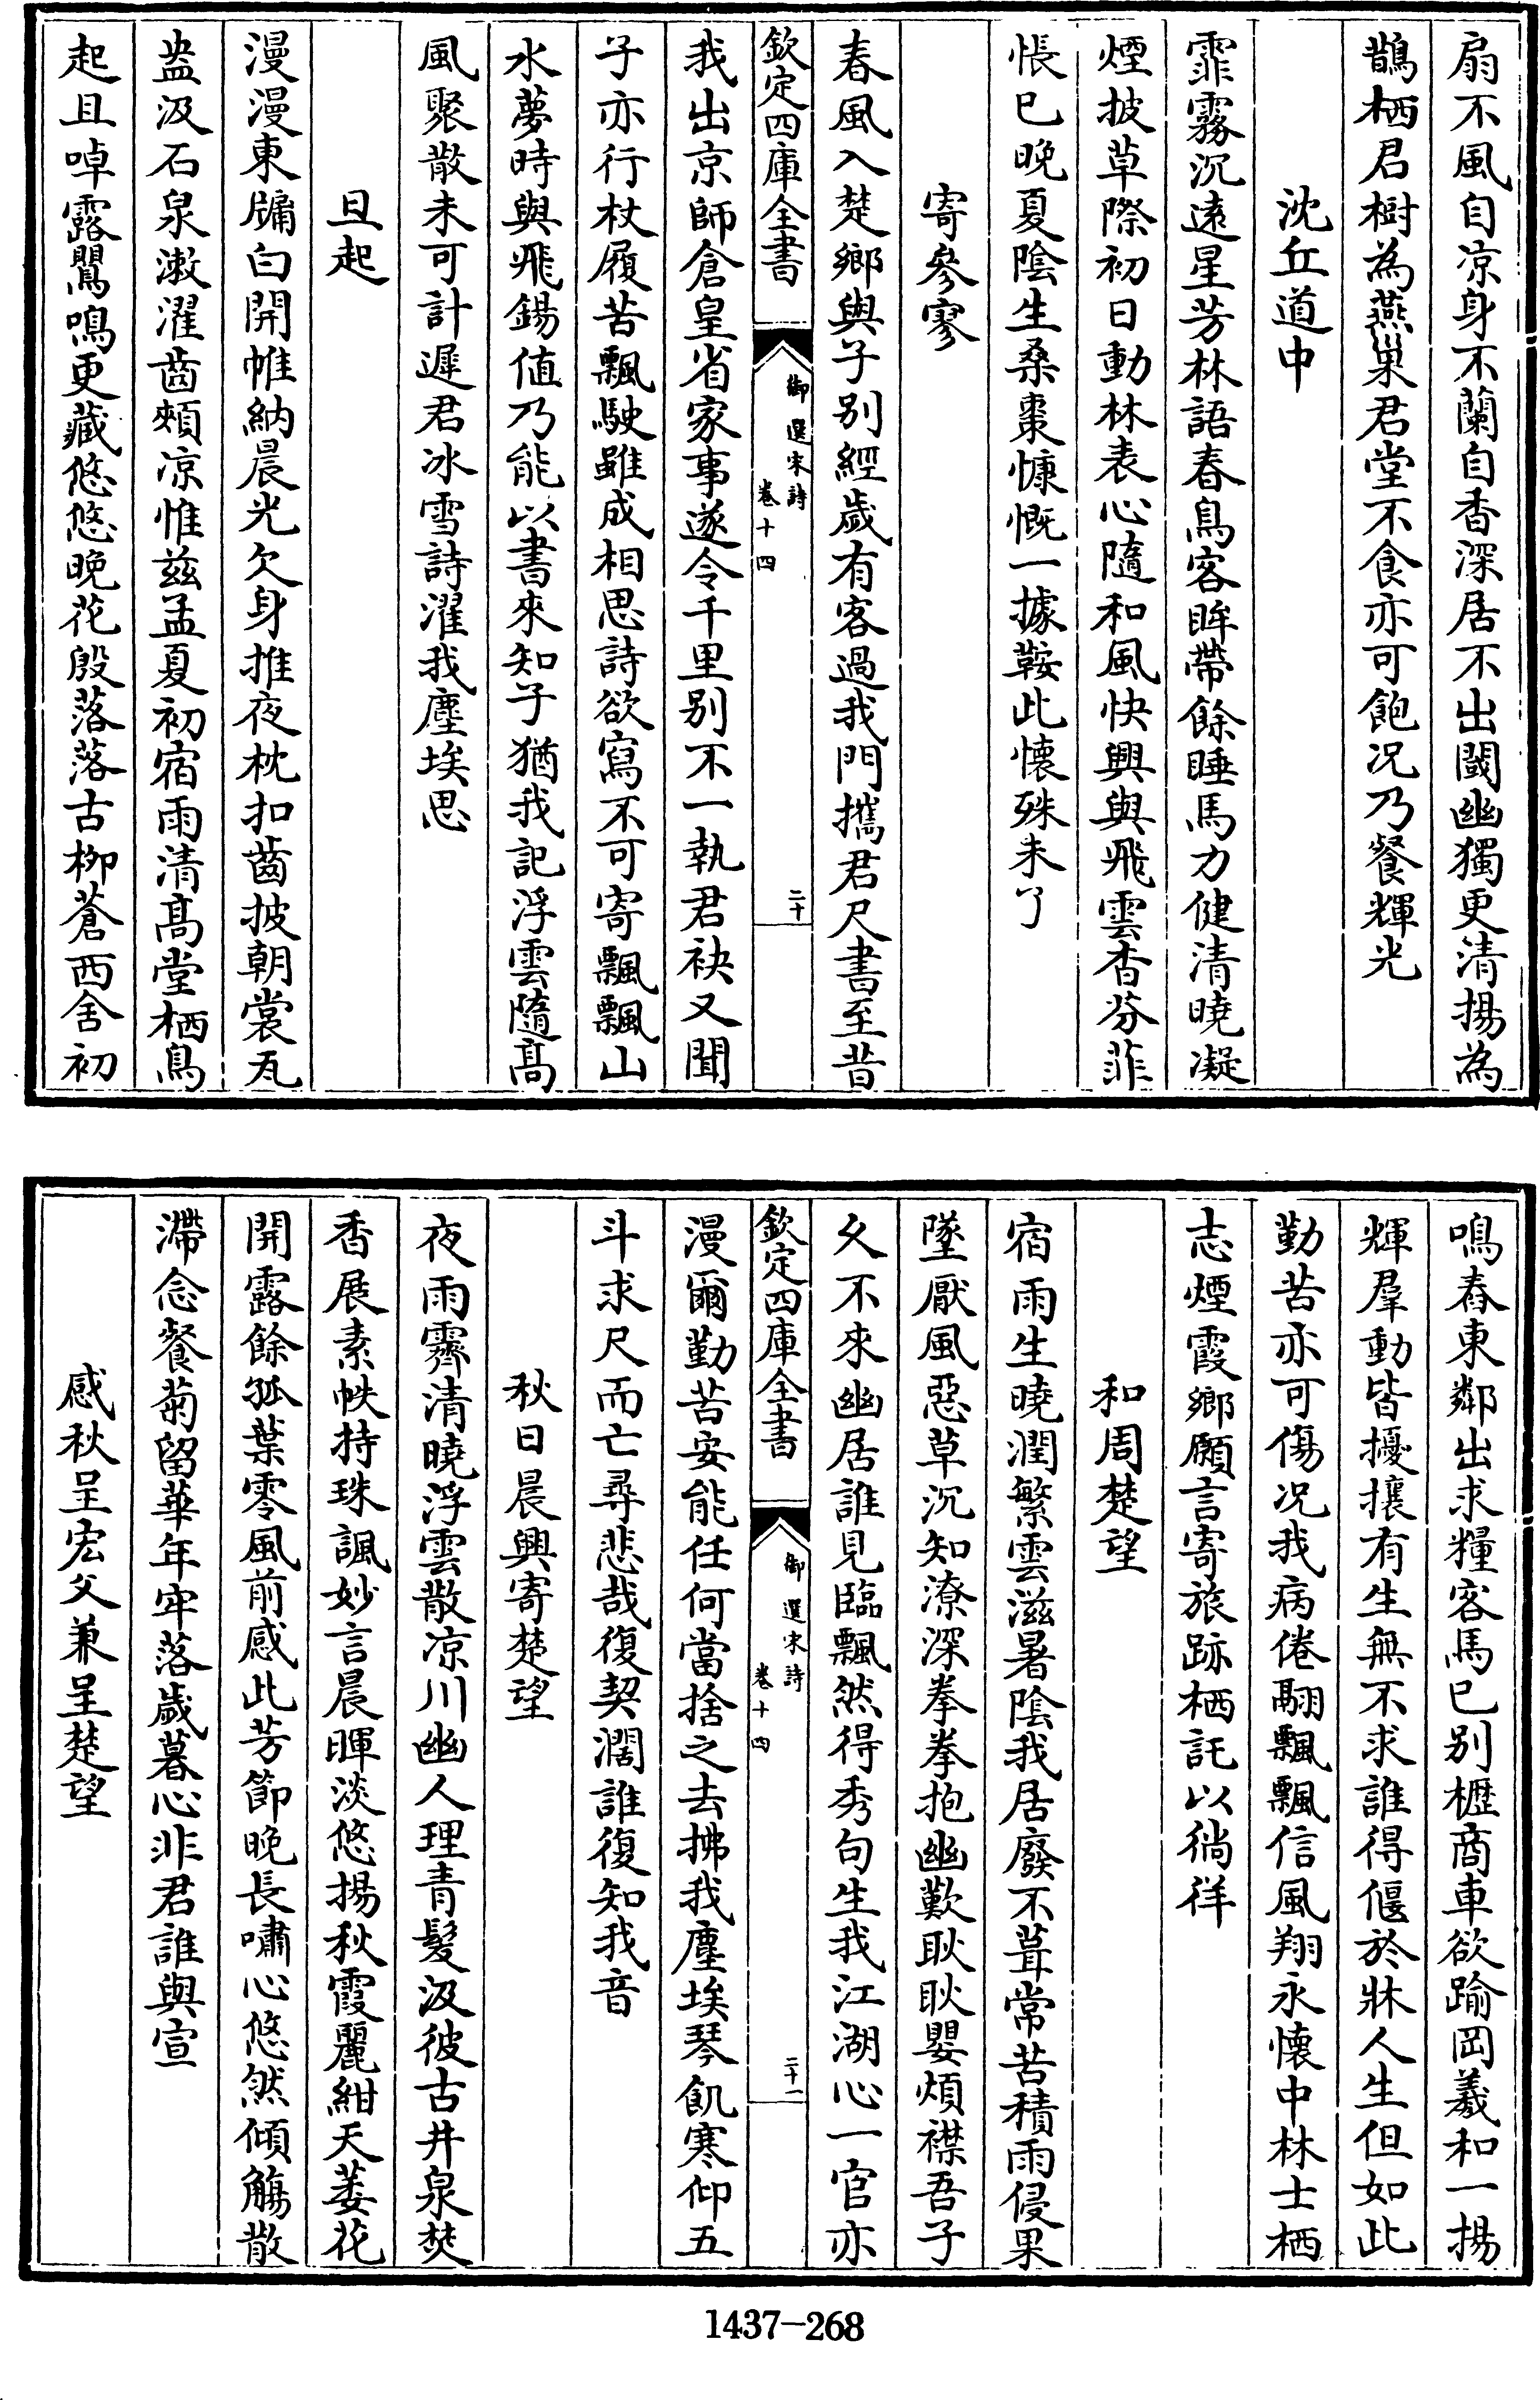 扇不風自凉身不蘭自香深居不出閾幽獨更清揚為
鵲栖君樹為燕巢君堂不食亦可飽况乃餐輝光
沈丘道中
霏霧沉遠星芳林語春鳥客眸帶餘睡馬力健清曉凝
煙披草際初日動林表心隨和風快興與飛雲杳芬菲
悵已晚夏陰生桑棗慷慨一據鞍此懷殊未了
寄參寥
春風入楚鄉與子别經歲有客過我門攜君尺書至昔
欽定四庫全書
御選宋詩
卷十四
二十
我出京師倉皇省家事遂令千里别不一執君袂又聞
子亦行杖履苦飄駛雖成相思詩欲寫不可寄飄飄山
水夢時與飛錫值乃能以書來知子猶我記浮雲隨髙
風聚散未可計遲君冰雪詩濯我塵埃思
旦起
漫漫東牖白開帷納晨光欠身推夜枕扣齒披朝裳瓦
盎汲石泉漱濯齒頰凉惟兹孟夏初宿雨清髙堂栖鳥
起且啅露鶗鳴更藏悠悠晚花殷落落古栁蒼西舍初
鳴舂東鄰出求糧客馬已别櫪商車欲踰岡羲和一揚
輝羣動皆擾攘有生無不求誰得偃於牀人生但如此
勤苦亦可傷况我病倦翮飄飄信風翔永懷中林士栖
志煙霞鄉願言寄旅跡栖託以徜徉
和周楚望
宿雨生曉潤繁雲滋暑陰我居廢不葺常苦積雨侵果
墜厭風惡草沉知潦深拳拳抱幽歎耿耿嬰煩襟吾子
乆不來幽居誰見臨飄然得秀句生我江湖心一官亦
欽定四庫全書
御選宋詩
卷十四
二十一
漫爾勤苦安能任何當捨之去拂我塵埃琴飢寒仰五
斗求尺而亡尋悲哉復契濶誰復知我音
秋日晨興寄楚望
夜雨霽清曉浮雲散凉川幽人理青髮汲彼古井泉焚
香展素帙持珠諷妙言晨暉淡悠揚秋霞麗紺天萎花
開露餘孤葉零風前感此芳節晚長嘯心悠然傾觴散
滯念餐菊留華年牢落歲暮心非君誰與宣
感秋呈宏父兼呈楚望
1437-268